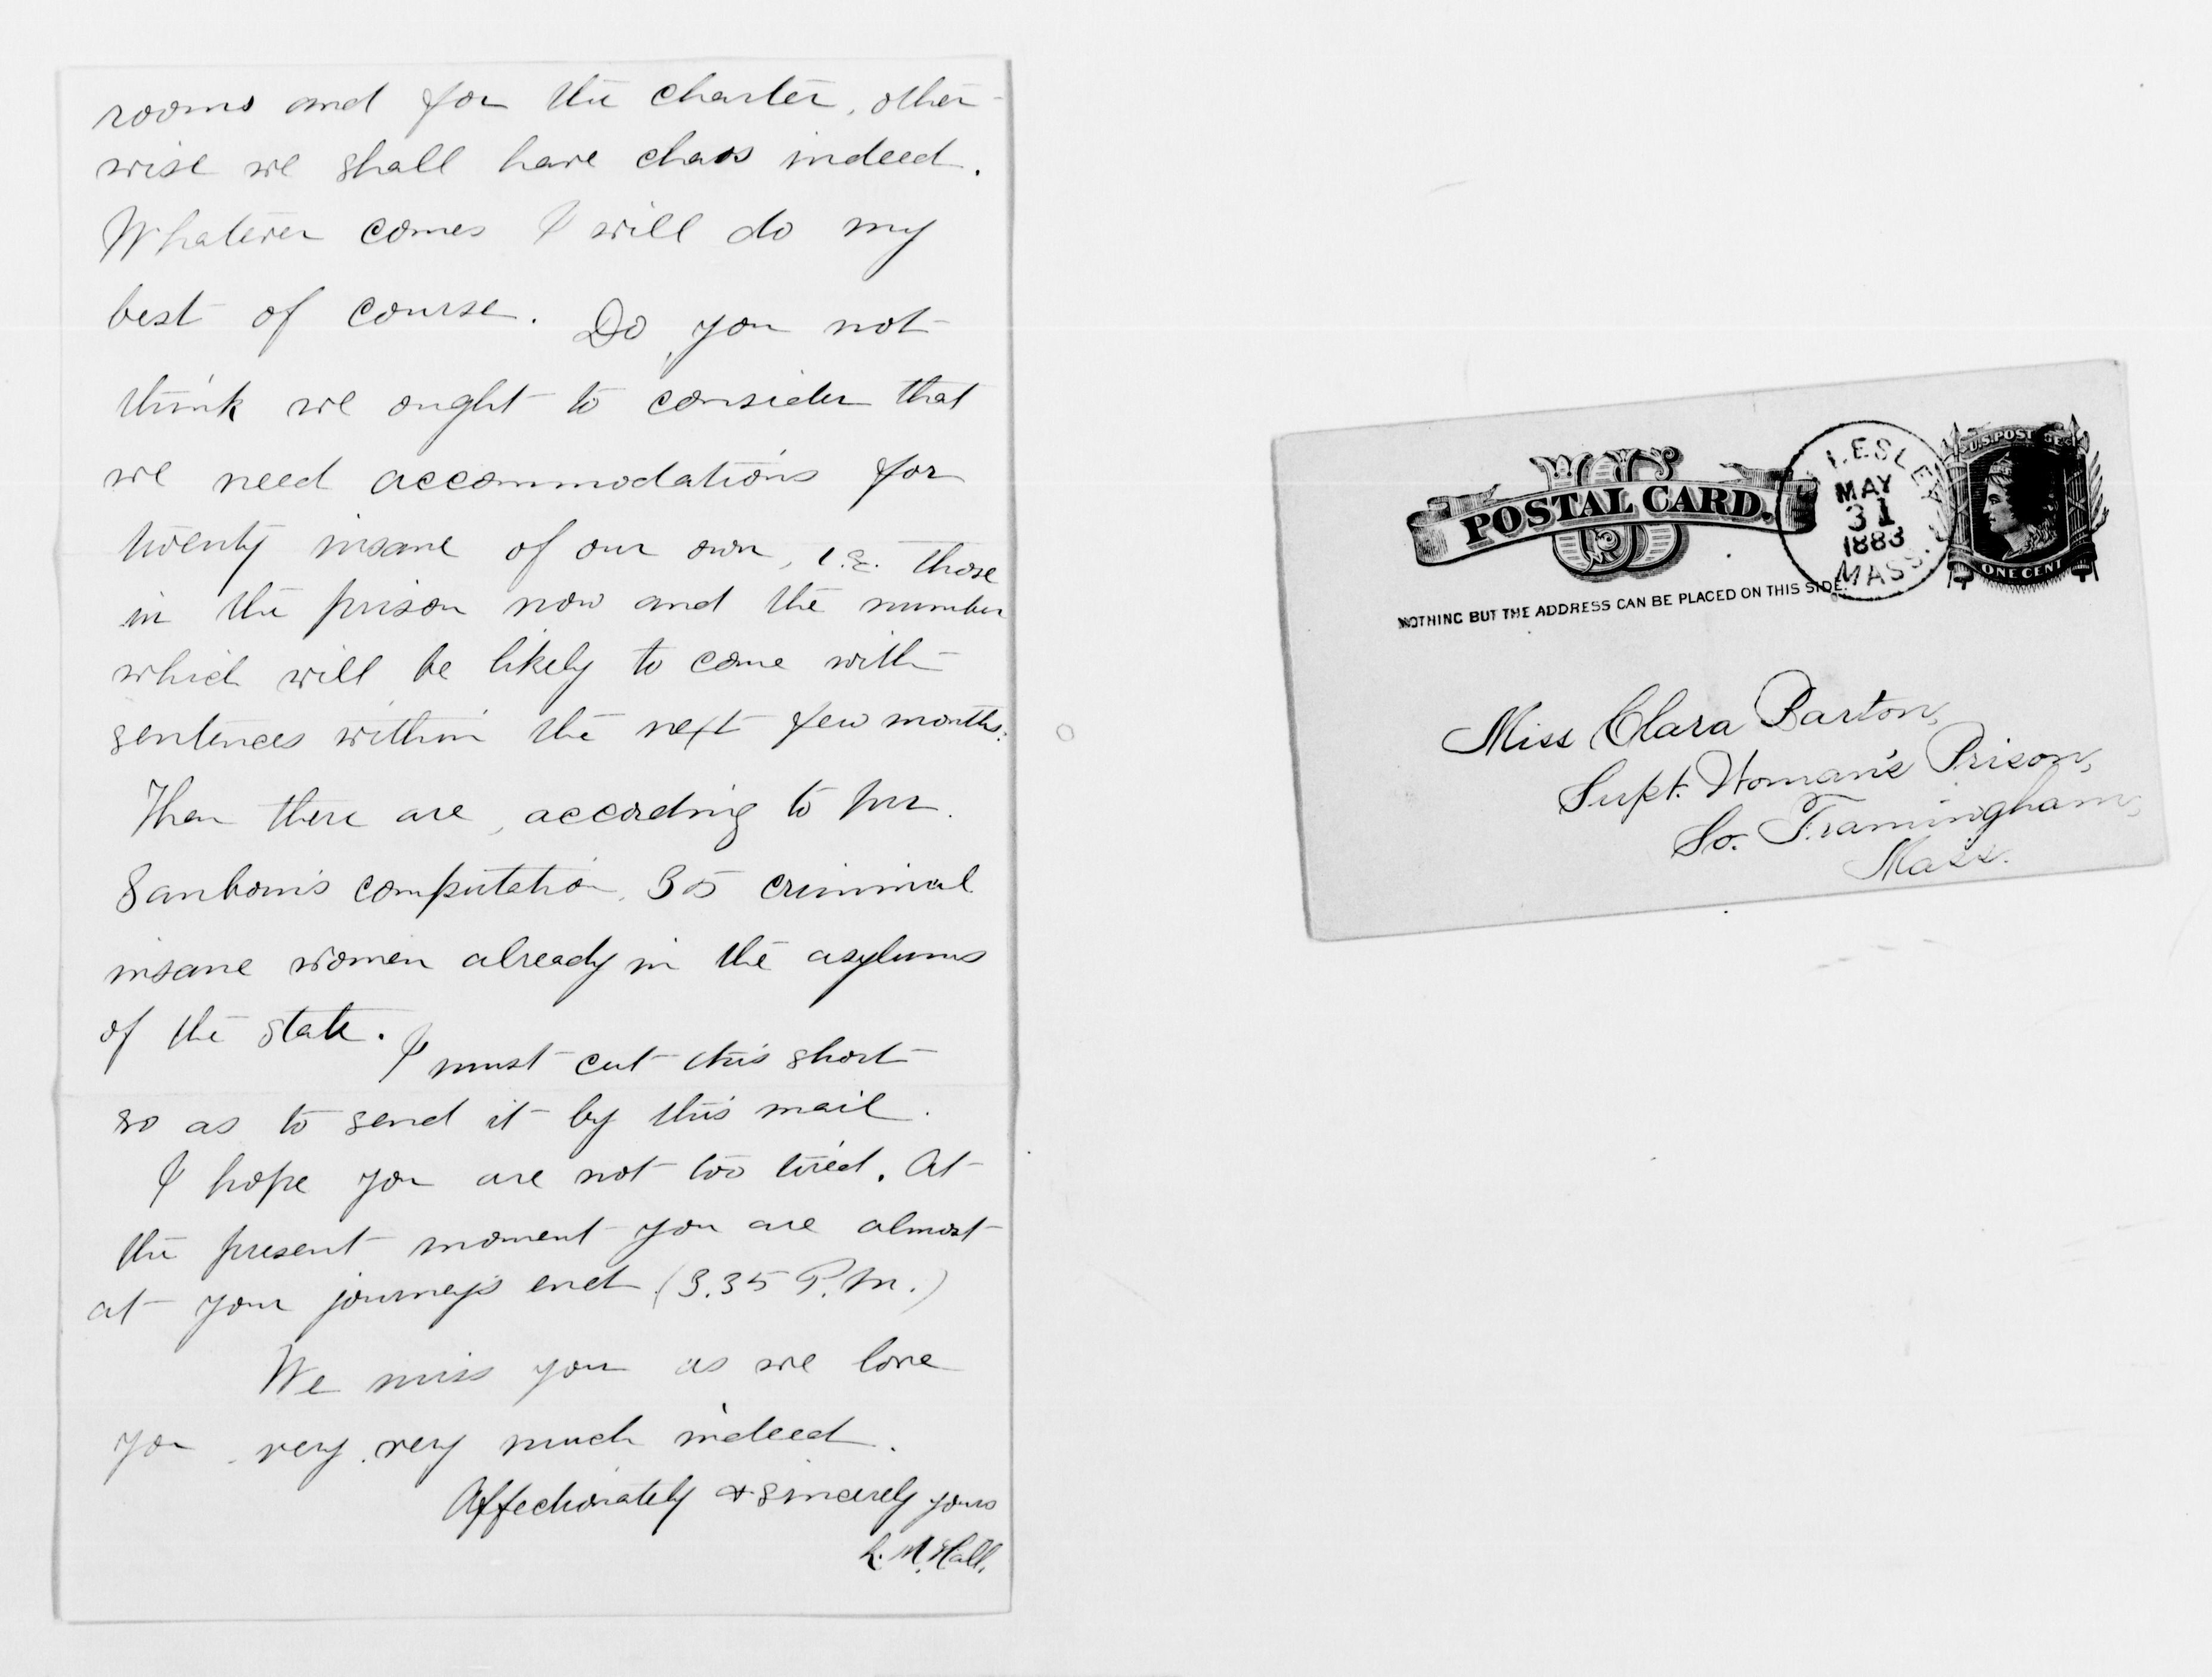 rooms and for the charter, other-
wise we shall have chaos indeed.
Whatever comes I will do my
best of course. Do you not
think we ought to consider that
we need accommodations for
twenty insane of our own, i.e. those
in the prison now and the number
which will be likely to come with
sentences within the next few months.
Then there are, according to Mr.
Sanborn's computation, 35 criminal
insane women already in the asylums
of the state. I must cut this short
so as to send it by this mail.
I hope you are not too tired. At
the present moment you are almost
at your journey's end (3.35 P.M.)
We miss you as we love
you, very, very much indeed.
Affectionately & sincerely yours
L. M. Hall.
US
POSTAL CARD.
NOTHING BUT THE ADDRESS CAN BE PLACED ON THIS SIDE.
LESLEY
MAY
31
1883
MASS.
U.S. POSTAGE
ONE CENT
Miss Clara Barton,
Supt. Woman's Prison,
So. Framingham,
Mass.